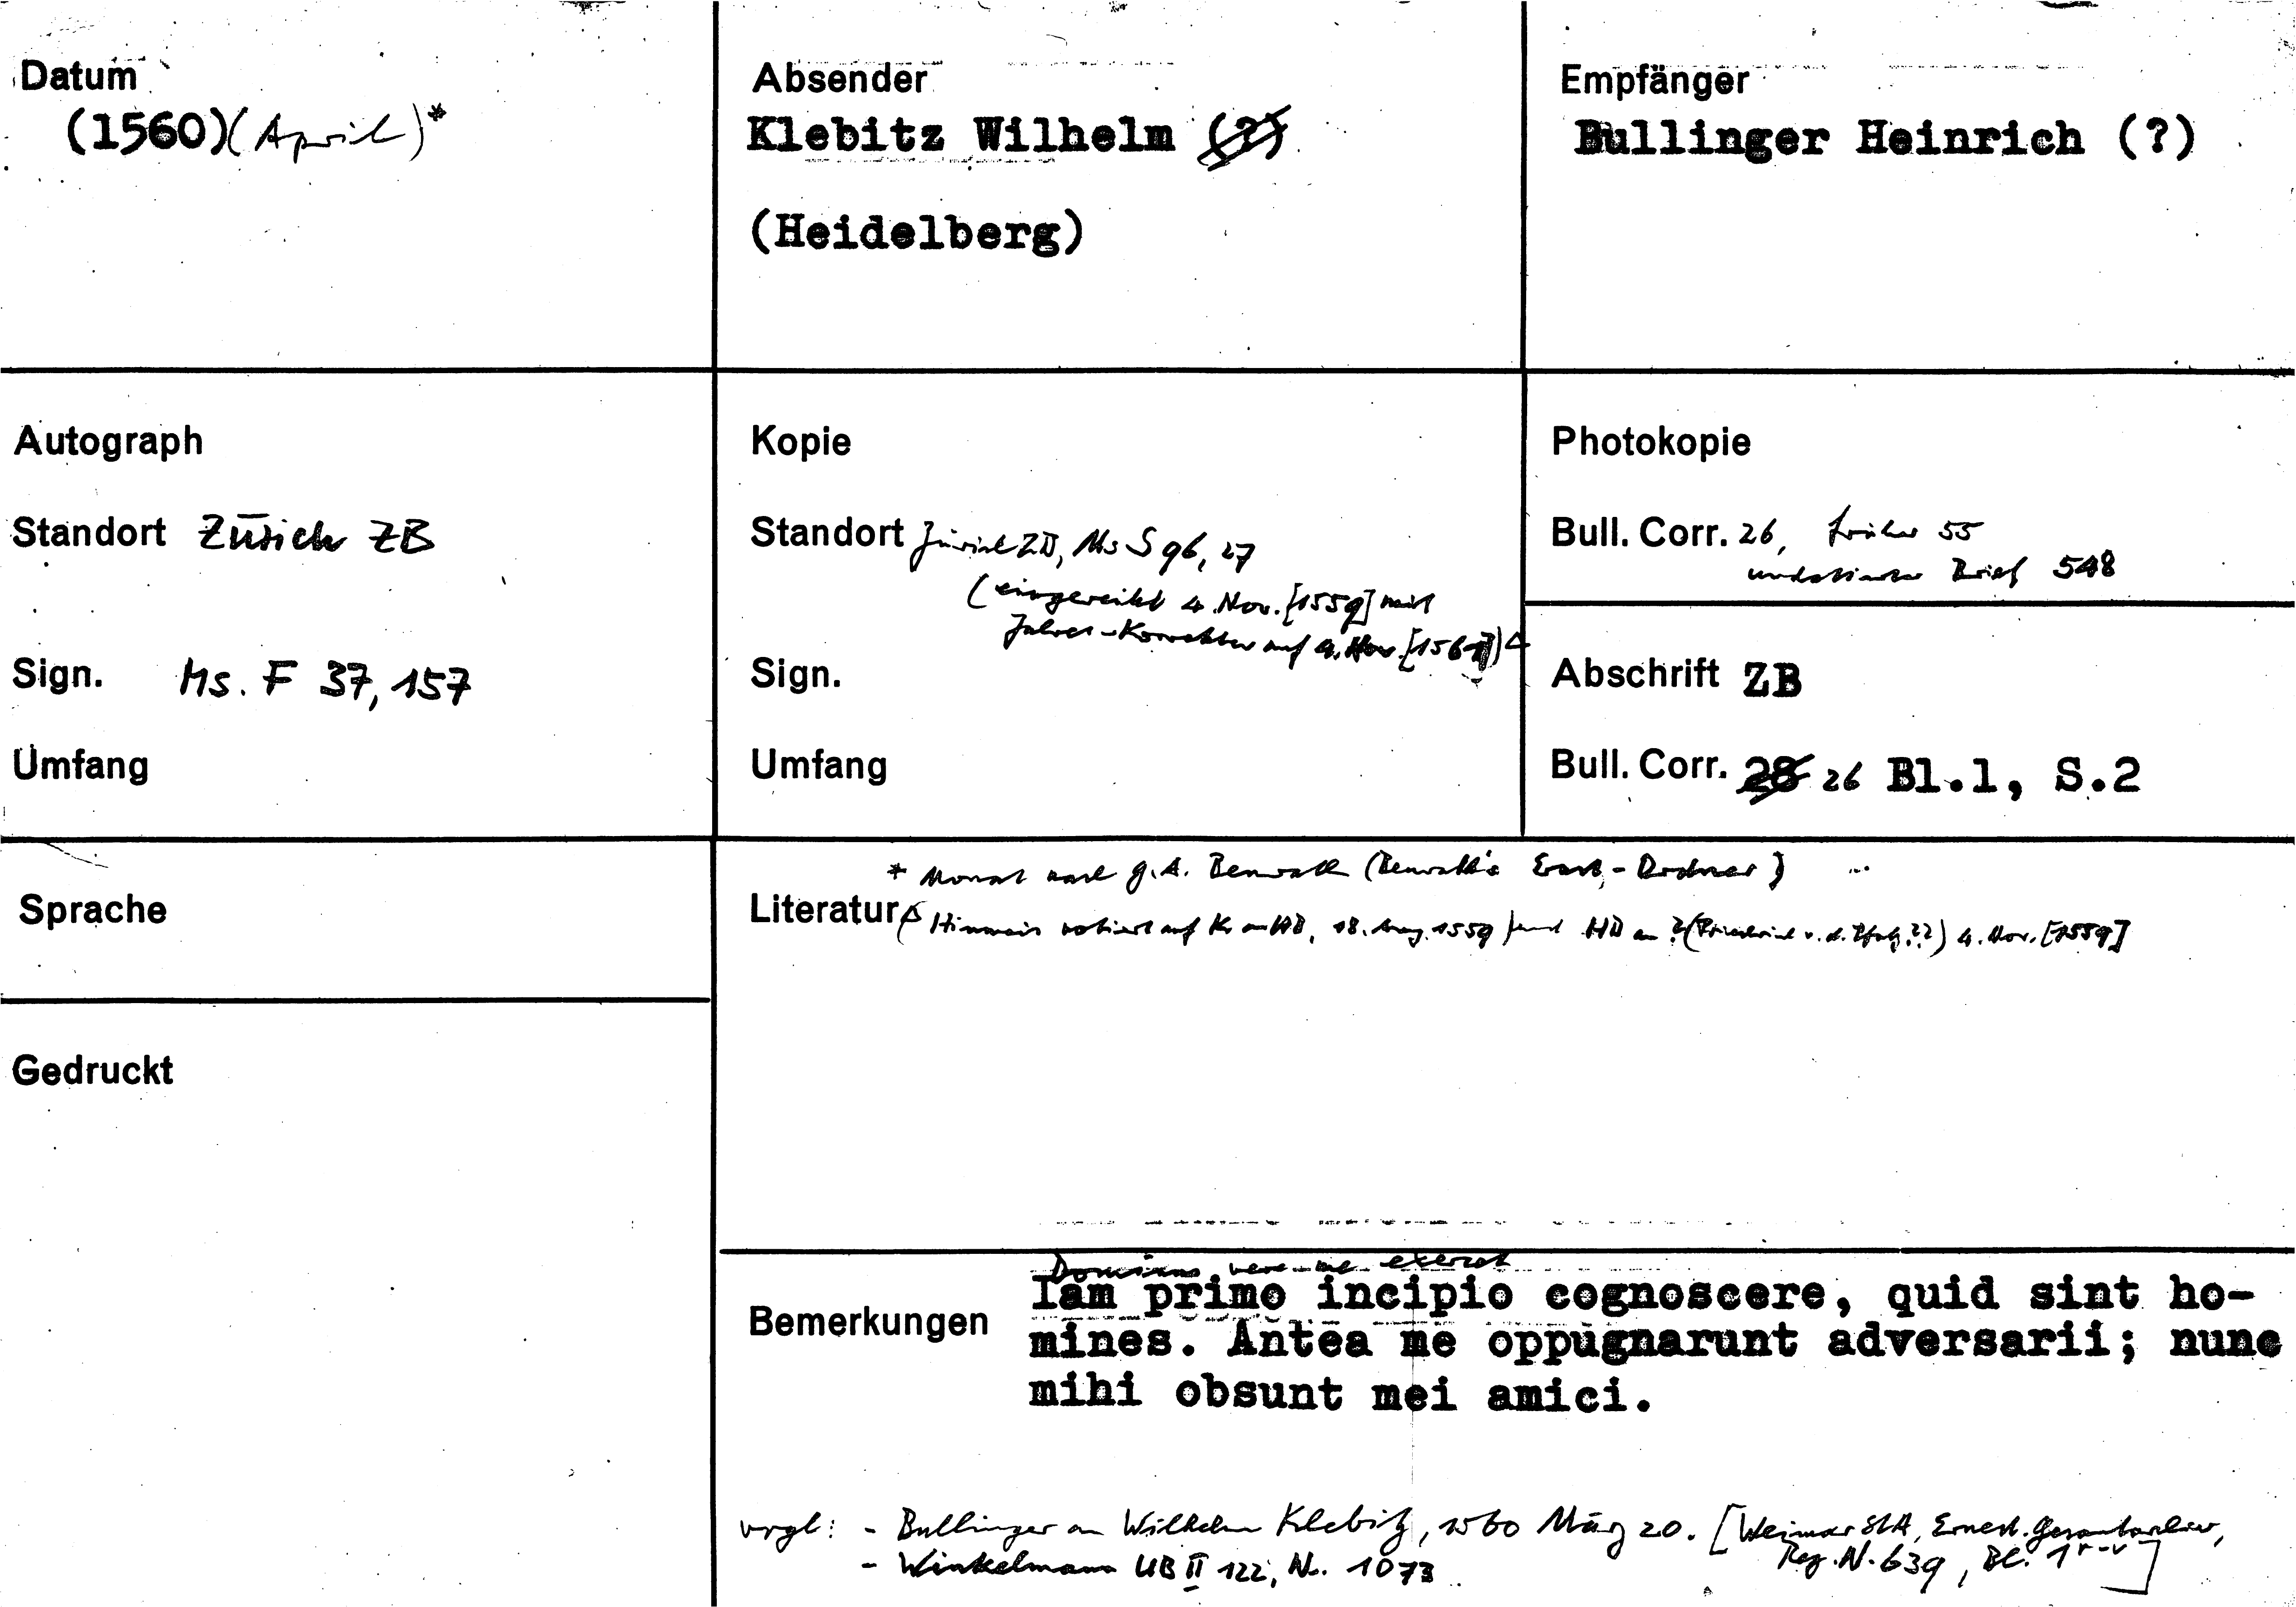 Datum
(1560)(April)*
Absender
Klebitz Wilhelm (?)
(Heidelberg)
Empfänger
Bullinger Heinrich (?)
Autograph
Standort Zürich ZB
Sign. Ms. F 37, 157
Umfang
Kopie
Standort Zürich ZB, Ms S 96, 27
(eingereiht 4. Nov. [1559] mit
Jahres-Korrektur auf 4. Nov. [1561])
Sign.
Umfang
Photokopie
Bull. Corr. 26, früher 55
undatierter Brief 548
Abschrift ZB
Bull. Corr. 28 26 Bl.1, S.2
Sprache
Gedruckt
* Monat nach G. A. Benrath (Benrath's Erast-Ordner)
Literatur Hinweis notiert auf Kr an HB, 18. Aug. 1559 und HB an ? (Friedrich v. d. Pfalz ??) 4. Nov. [1559]
Dominus vere me exercet
Bemerkungen Iam primo incipio cognoscere, quid sint ho-
mines. Antea me oppugnarunt adversarii; nunc
mihi obsunt mei amici.
vrgl: - Bullinger an Wilhelm Klebitz, 1560 März 20. [Weimar StA, Ernest. Gesamtarchiv,
Reg. N. 639, Bl. 1r-v]
- Winkelmann UB II 122, Nr. 1073